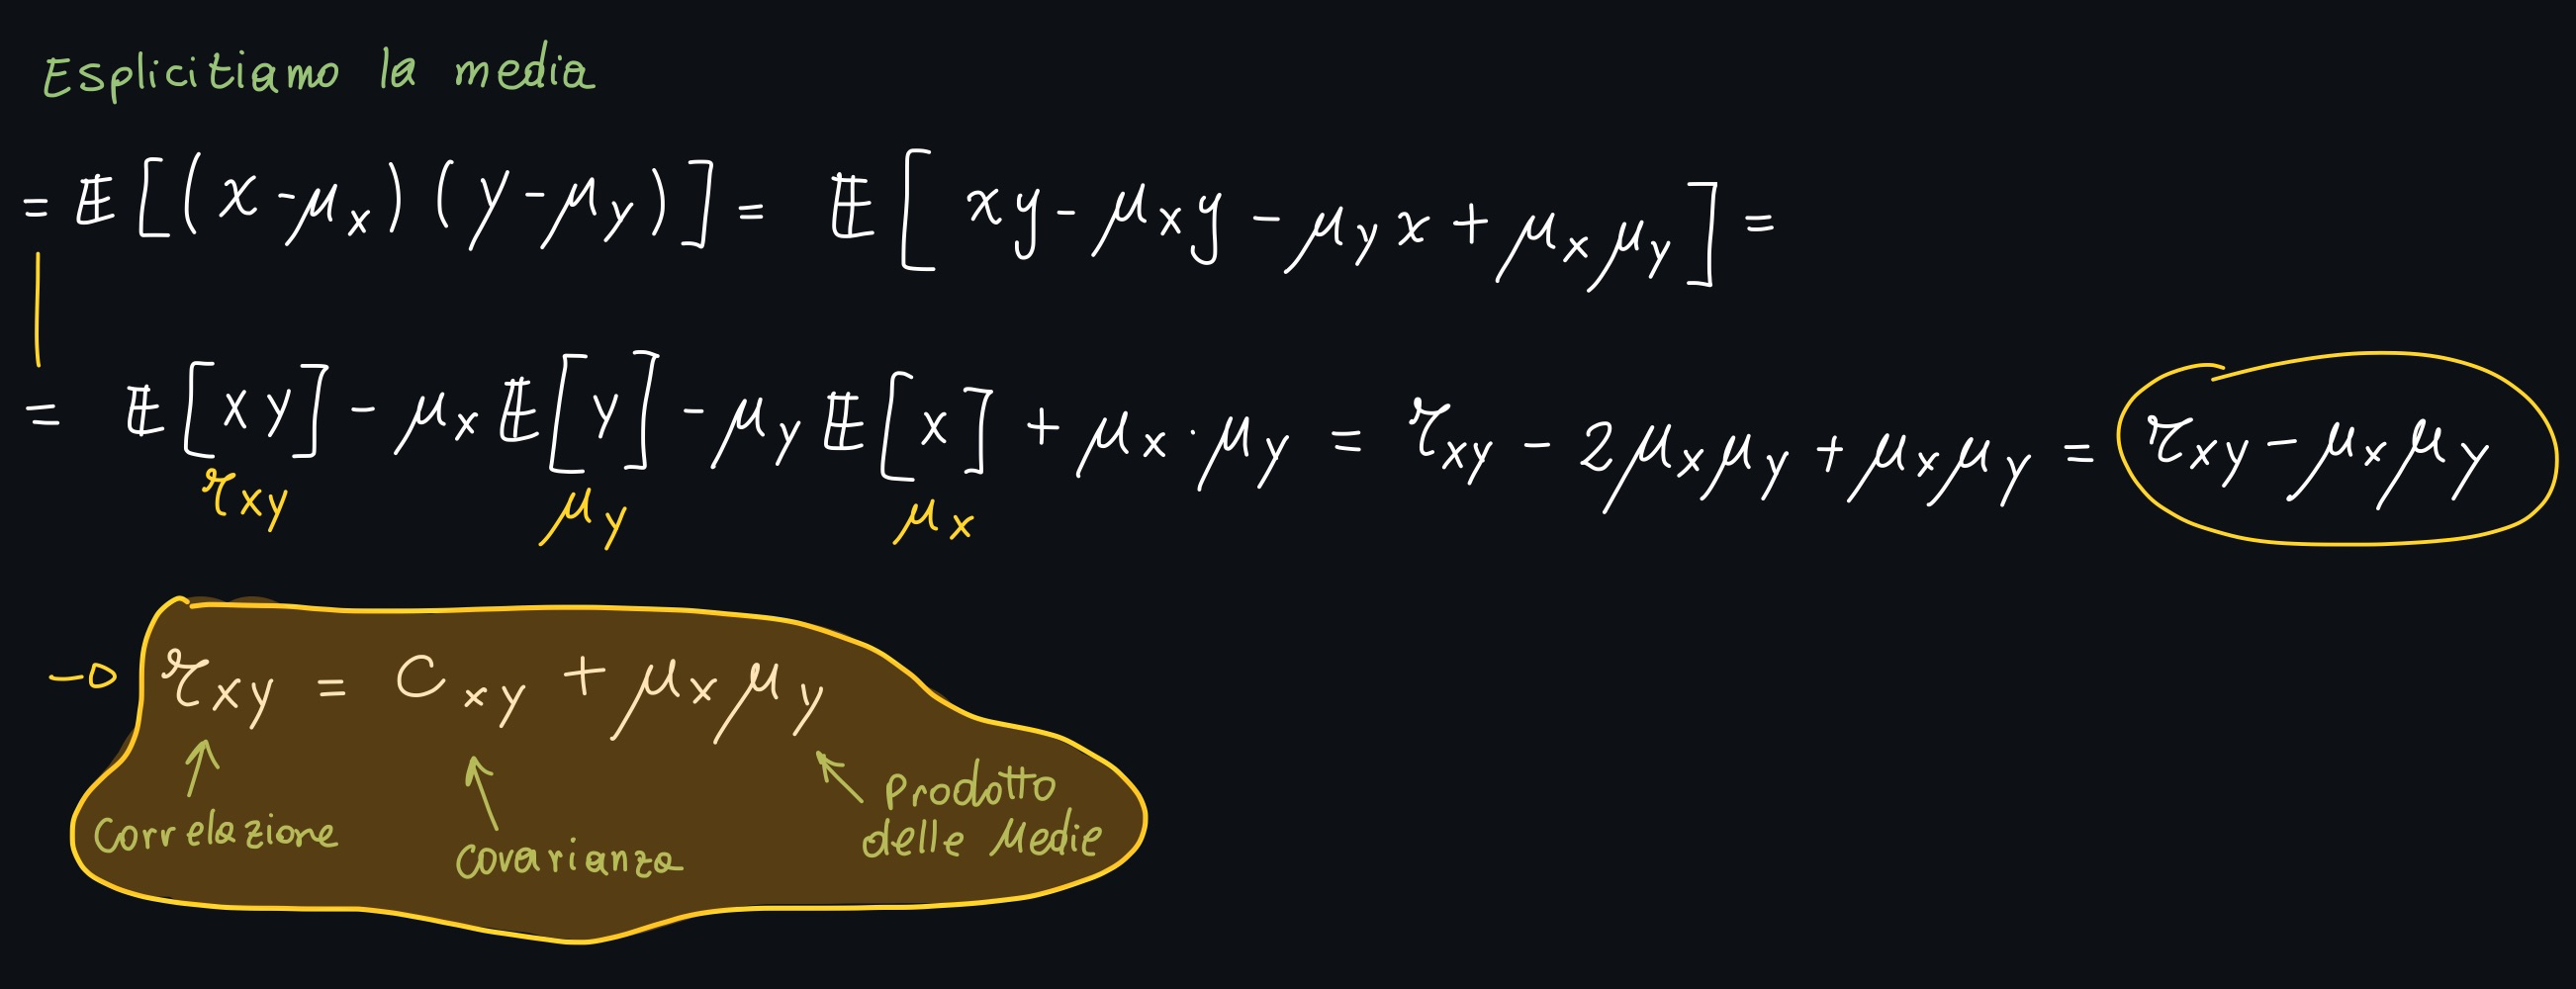 Esplicitiamo la media
= 𝔼[(x-μₓ)(y-μ_y)] = 𝔼[xy - μₓy - μ_y x + μₓμ_y] =
= 𝔼[xy] - μₓ𝔼[y] - μ_y𝔼[x] + μₓ·μ_y = r_xy - 2μₓμ_y + μₓμ_y = r_xy - μₓμ_y
r_xy μ_y μₓ
→ r_xy = C_xy + μₓμ_y
Correlazione
Covarianza
Prodotto
delle Medie